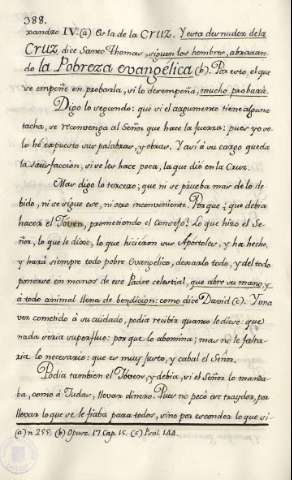 388.
xandro IV. (a) Esta de la CRUZ. Y esta desnudez de la
CRUZ, dice Santo Thomas, siguen los hombres, abrazan-
do la Pobreza evangélica (b). Por esto, el que
se empeñe en probarla, si lo desempeña, mucho probará.
Digo lo segundo: que si el argumento tiene alguna
tacha, se reconvenga al Señor que hace la fuerza: pues yo so-
lo hè expuesto sus palabras, y obras. Y assi à su cargo queda
la satisfaccion, si ve les hace poca, la que diò en la Cruz.
Mas digo lo tercero: que ni se prueba mas de lo de-
bido, ni se sigue ese, ni otro inconveniente. Porque; que debia
hacer el Joven, prometiendo el consejo? Lo que hizo el Se-
ñor, lo que le dixo, lo que hicieron sus Apóstoles, y ha hecho,
y hará siempre todo pobre Evangelico, dexarlo todo, y del todo
ponerse en manos de ese Padre celestial, que abre su mano, y
à todo animal llena de bendicion: como dice David (c). Y una
vez cometido à su cuidado, podia recibir quanto le diese: que
nada seria superfluo: por que lo abomina; mas no le falta-
ria lo necesario: que es muy justo, y cabal el Señor.
Podia tambien el Joven, y debia, si el Señor lo manda-
ba, como à Judas, llevar dinero. Pues no pecó ese traydor, por
llevar lo que se le fiaba para todos, sino por esconder lo que si-
(a) n. 255. (b) Opusc. 17. Cap. 15. (c) Psal. 144.